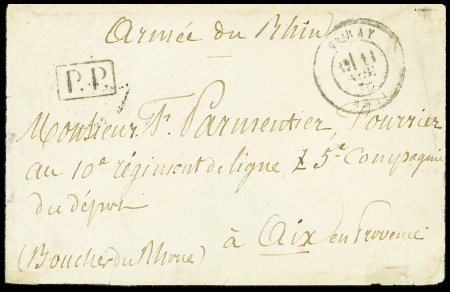 Armée du Rhin
P.P.
Monsieur F. Parmentier, Fourrier
au 10e régiment de ligne, 5e Compagnie
du dépot
à Aix en Provence
(Bouches du Rhone)